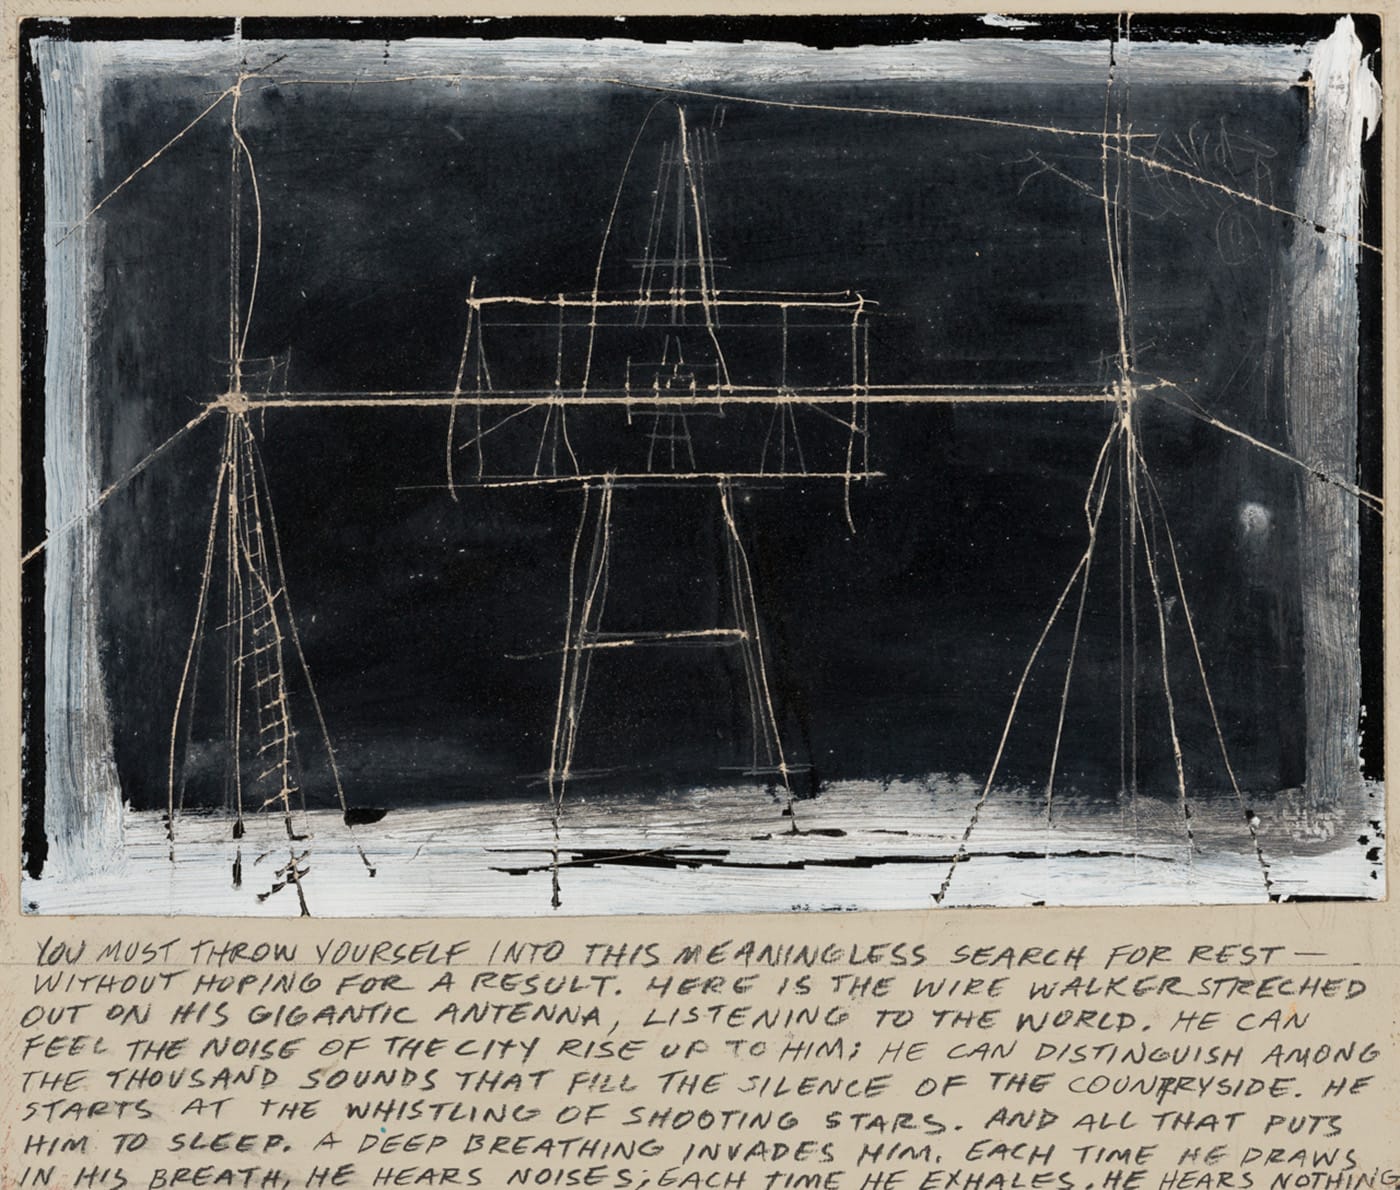 YOU MUST THROW YOURSELF INTO THIS MEANINGLESS SEARCH FOR REST —
WITHOUT HOPING FOR A RESULT. HERE IS THE WIRE WALKER STRECHED
OUT ON HIS GIGANTIC ANTENNA, LISTENING TO THE WORLD. HE CAN
FEEL THE NOISE OF THE CITY RISE UP TO HIM; HE CAN DISTINGUISH AMONG
THE THOUSAND SOUNDS THAT FILL THE SILENCE OF THE COUNTRYSIDE. HE
STARTS AT THE WHISTLING OF SHOOTING STARS. AND ALL THAT PUTS
HIM TO SLEEP. A DEEP BREATHING INVADES HIM. EACH TIME HE DRAWS
IN HIS BREATH, HE HEARS NOISES; EACH TIME HE EXHALES, HE HEARS NOTHING